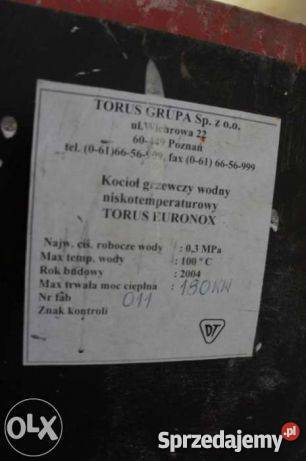 TORUS GRUPA Sp. z o.o.
ul. Wichrowa 22
60-449 Poznań
tel. (0-61)66-56-999, fax (0-61) 66-56-999
Kocioł grzewczy wodny
niskotemperaturowy
TORUS EURONOX
Najw. ciś. robocze wody : 0,3 MPa
Max temp. wody : 100 °C
Rok budowy : 2004
Max trwała moc cieplna : 180KW
Nr fab 011
Znak kontroli
DT
OLX
Sprzedajemy.pl